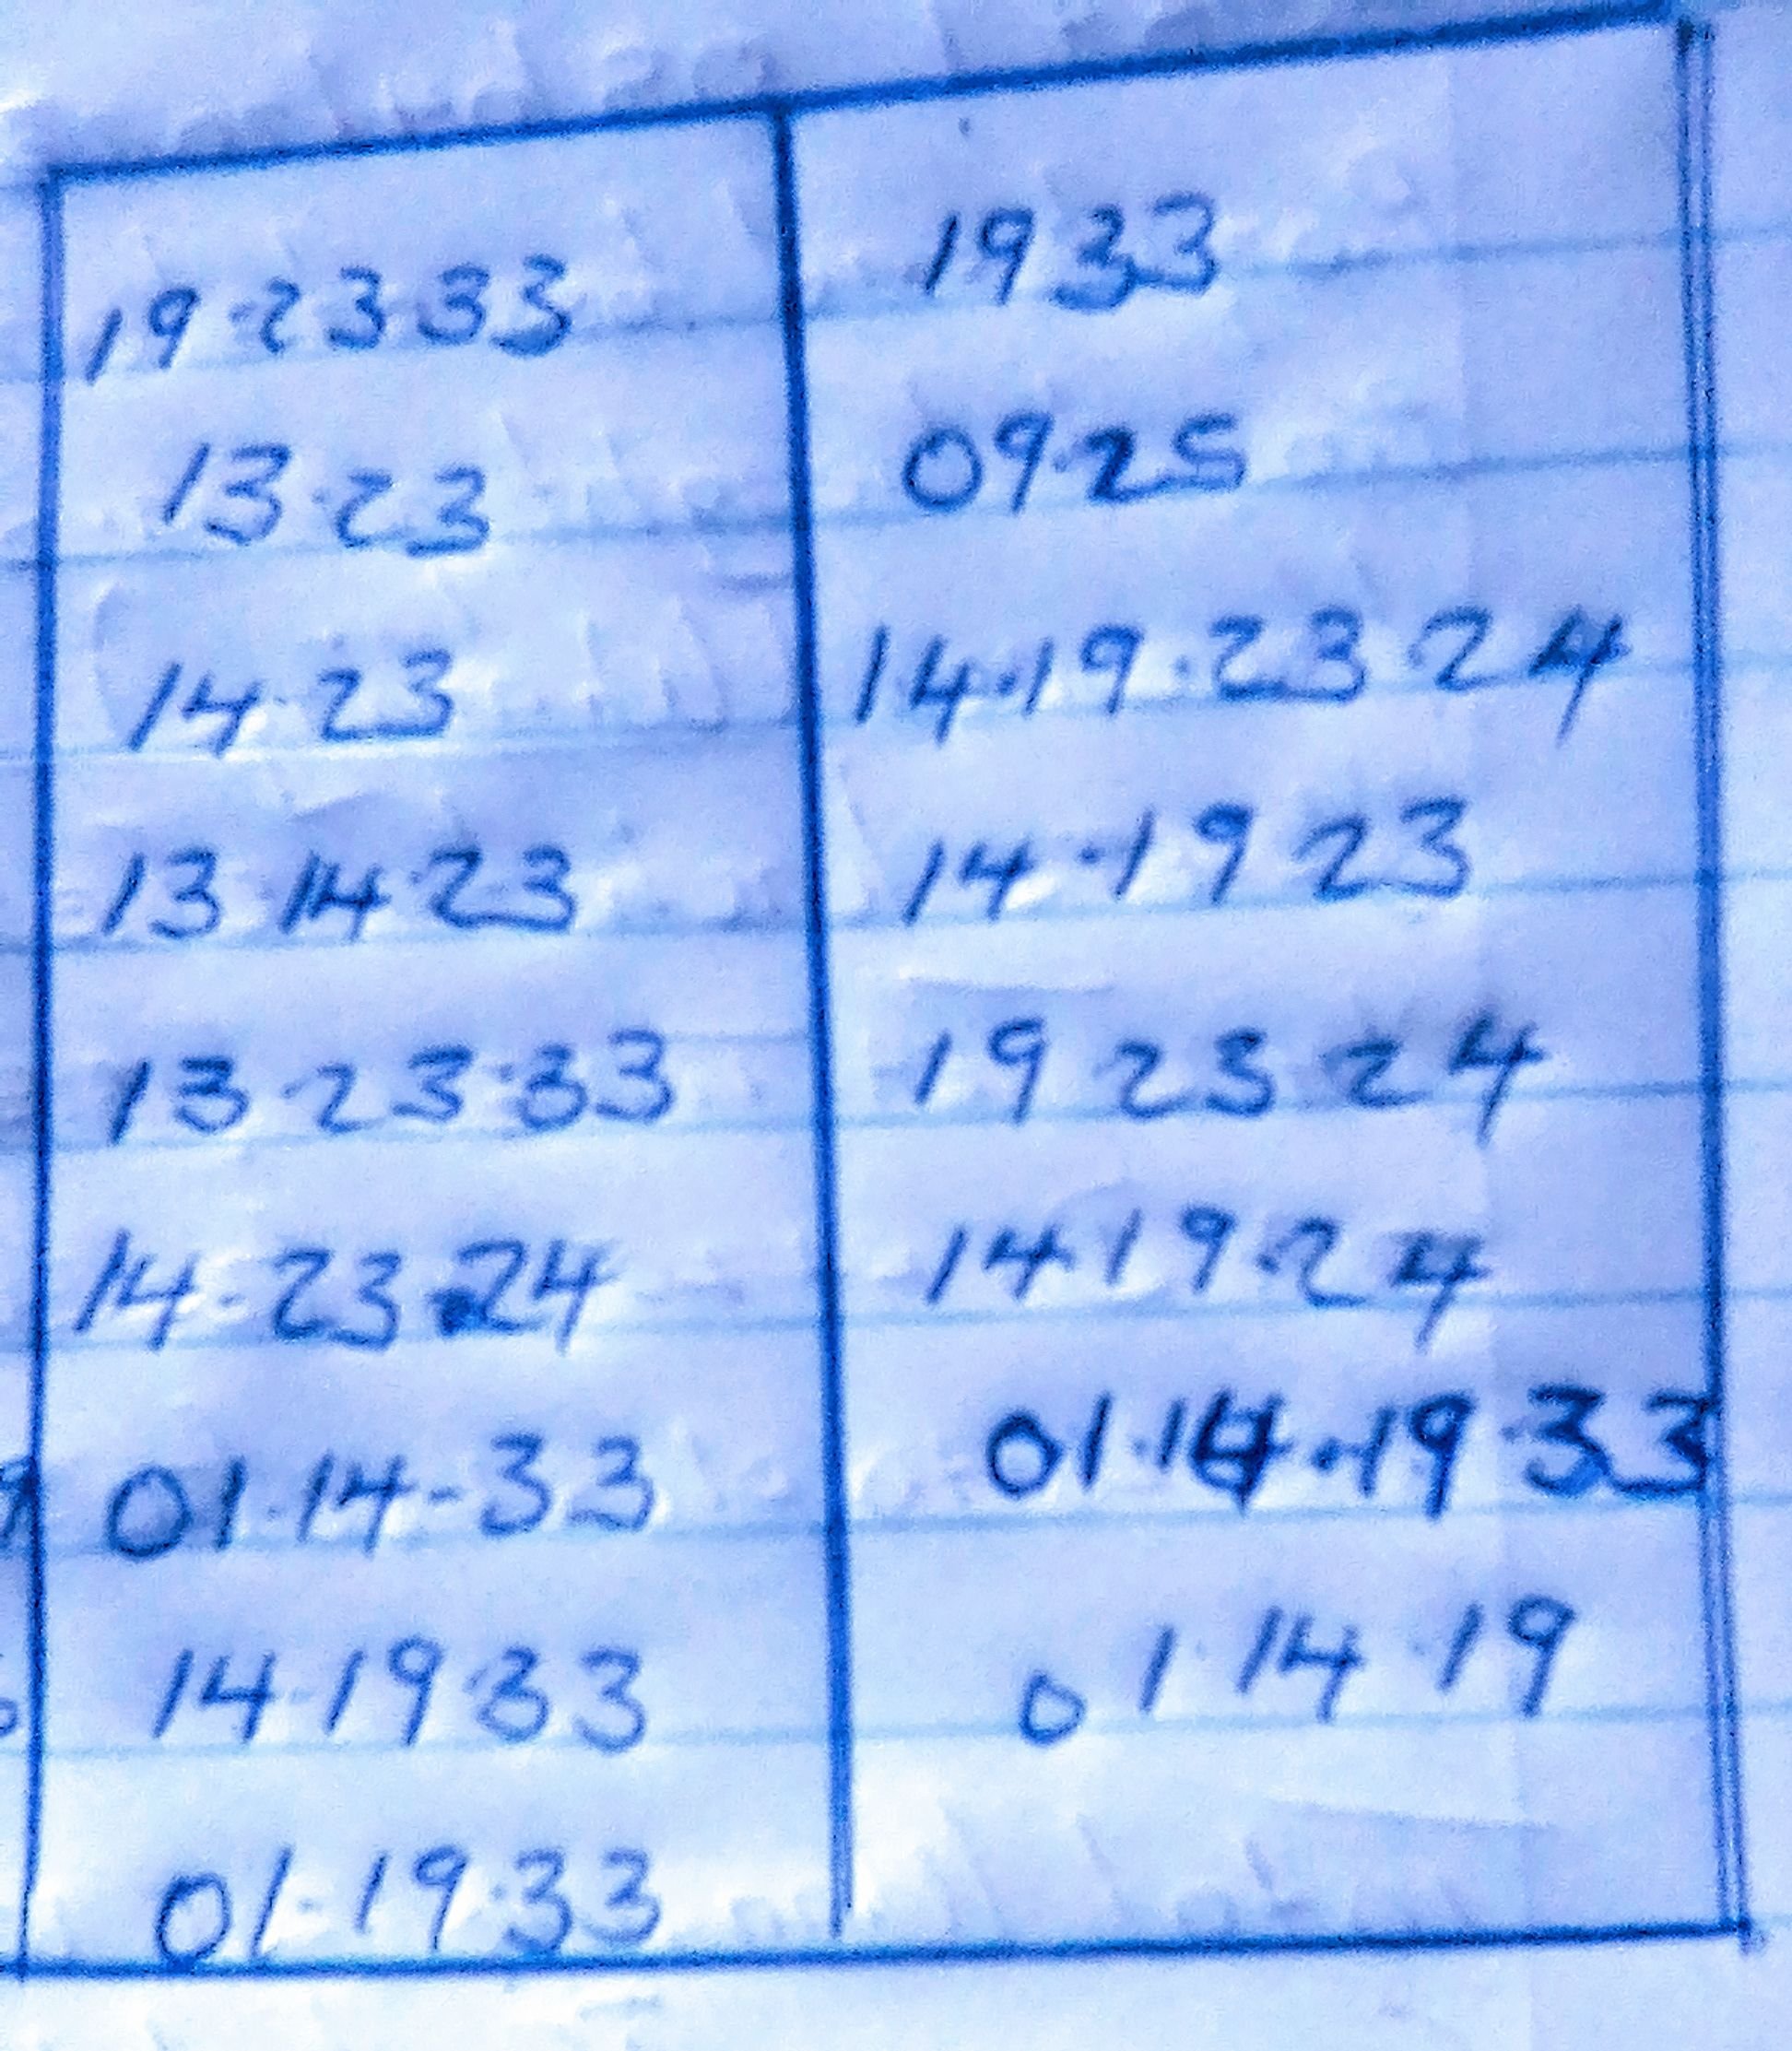 19·23 33
13·23
14·23
13 14·23
13·23·33
14-23·24
01·14-33
14·19·33
01·19·33
19 33
09·25
14·19·23 24
14·19 23
19 23 24
14·19·24
01·14·19·33
01·14·19